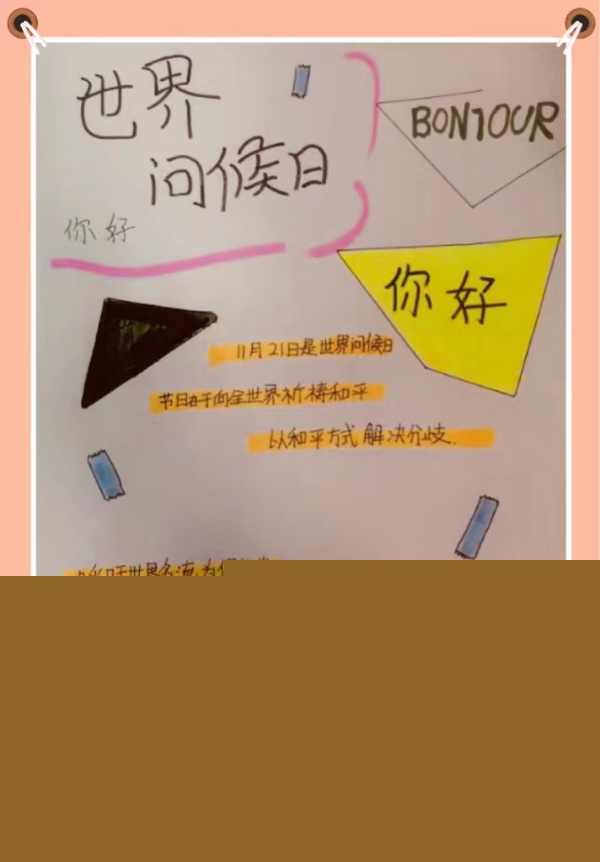 世界
问候日
BONJOUR
你好
你好
11月21日是世界问候日
节日在于向全世界祈祷和平
以和平方式解决分歧.
世界名流为